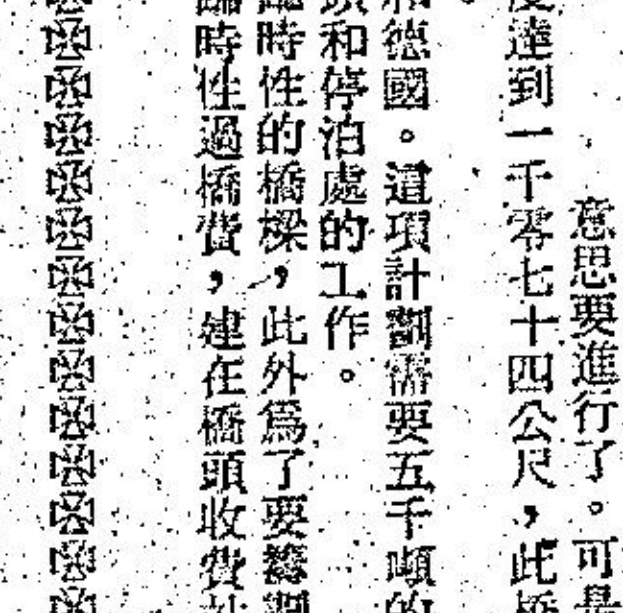 意思要進行了。可是
度達到一千零七十四公尺,此橋
和德國。這項計劃需要五千噸的
和停泊處的工作。
臨時性的橋樑,此外爲了要籌
臨時性過橋費,建在橋頭收費站